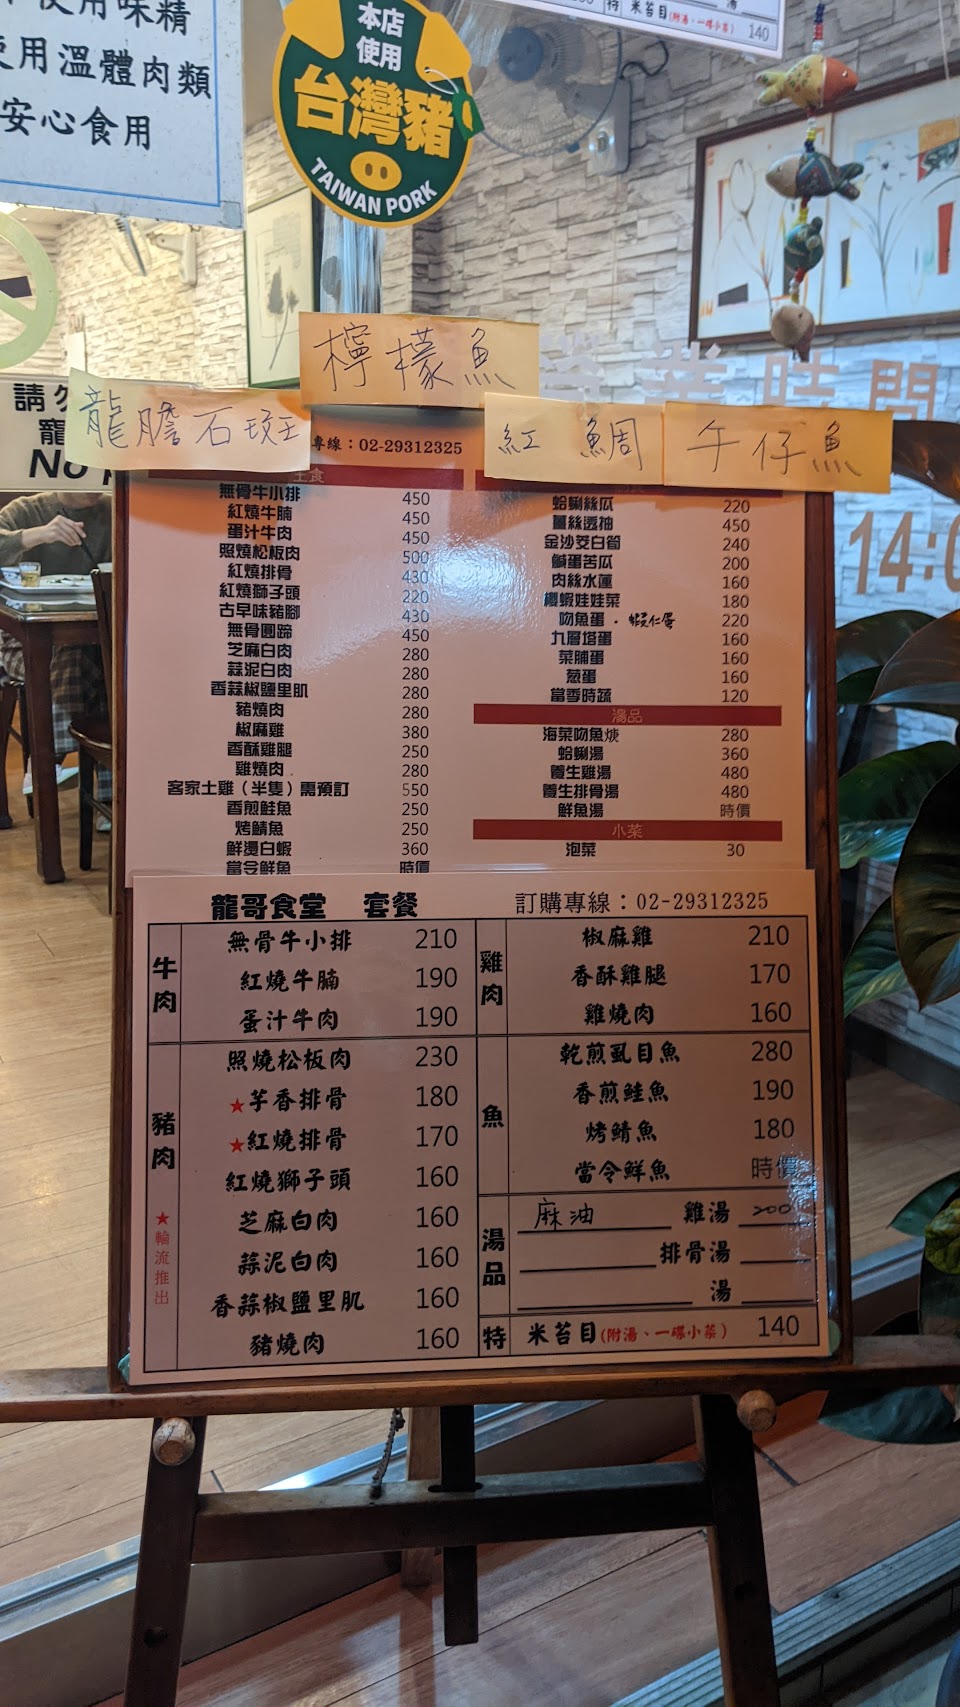 使用味精
使用溫體肉類
安心食用
本店
使用
台灣豬
TAIWAN PORK
特 米苔目(附湯、一碟小菜) 140
檸檬魚
龍膽石斑
紅鯛
午仔魚
營業時間
14:0
請勿
寵
No
專線：02-29312325
主食
無骨牛小排 450
紅燒牛腩 450
蛋汁牛肉 450
照燒松板肉 500
紅燒排骨 430
紅燒獅子頭 220
古早味豬腳 430
無骨圓蹄 450
芝麻白肉 280
蒜泥白肉 280
香蒜椒鹽里肌 280
豬燒肉 280
椒麻雞 380
香酥雞腿 250
雞燒肉 280
客家土雞（半隻）需預訂 550
香煎鮭魚 250
烤鯖魚 250
鮮燙白蝦 360
當令鮮魚 時價
蛤蜊絲瓜 220
薑絲透抽 450
金沙茭白筍 240
鹹蛋苦瓜 200
肉絲水蓮 160
櫻蝦娃娃菜 180
吻魚蛋．蝦仁蛋 220
九層塔蛋 160
菜脯蛋 160
蔥蛋 160
當季時蔬 120
湯品
海菜吻魚焿 280
蛤蜊湯 360
養生雞湯 480
養生排骨湯 480
鮮魚湯 時價
小菜
泡菜 30
龍哥食堂 套餐 訂購專線：02-29312325
牛肉
無骨牛小排 210
紅燒牛腩 190
蛋汁牛肉 190
豬肉
★輪流推出
照燒松板肉 230
★芋香排骨 180
★紅燒排骨 170
紅燒獅子頭 160
芝麻白肉 160
蒜泥白肉 160
香蒜椒鹽里肌 160
豬燒肉 160
雞肉
椒麻雞 210
香酥雞腿 170
雞燒肉 160
魚
乾煎虱目魚 280
香煎鮭魚 190
烤鯖魚 180
當令鮮魚 時價
湯品
麻油 雞湯 200
排骨湯
湯
特 米苔目(附湯、一碟小菜) 140